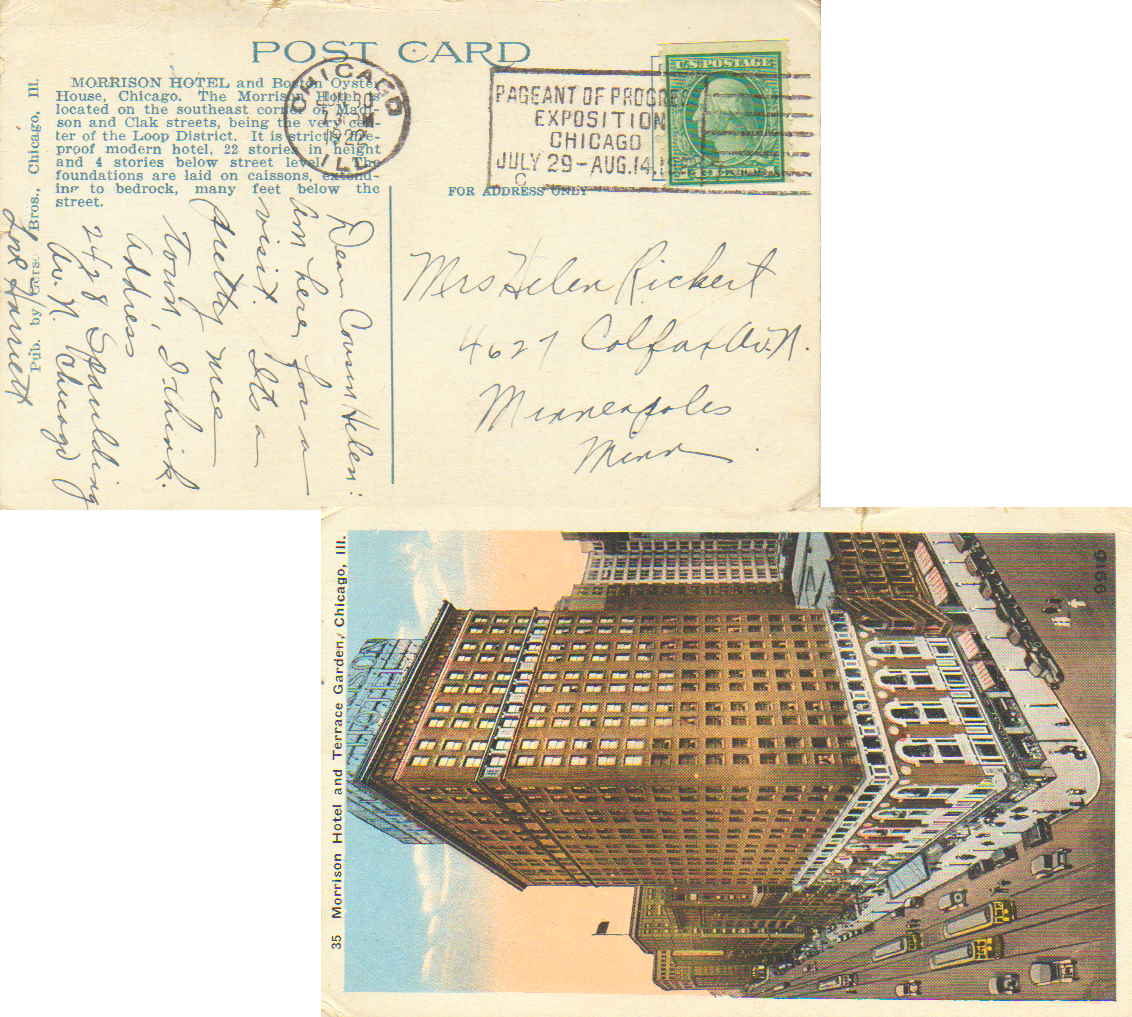 POST CARD
MORRISON HOTEL and Boston Oyster
House, Chicago. The Morrison Hotel is
located on the southeast corner of Madi-
son and Clak streets, being the very cen-
ter of the Loop District. It is strictly fire-
proof modern hotel, 22 stories in height
and 4 stories below street level. The
foundations are laid on caissons, extend-
ing to bedrock, many feet below the
street.
Pub. by Bros., Chicago, Ill.
CHICAGO
1922
ILL.
PAGEANT OF PROGRE
EXPOSITION
CHICAGO
JULY 29-AUG.14.19
C
U.S. POSTAGE
FOR ADDRESS ONLY
Dear Cousin Helen:
Am here for a
visit. Its a
pretty nice
town, I think.
Address
2428 Spaulding
Av. N. Chicago
Love Harriett
Mrs Helen Rickert
4627 Colfax Av. N.
Minneapoles
Minn.
35 Morrison Hotel and Terrace Garden, Chicago, Ill.
9916
MORRISON
HOTEL